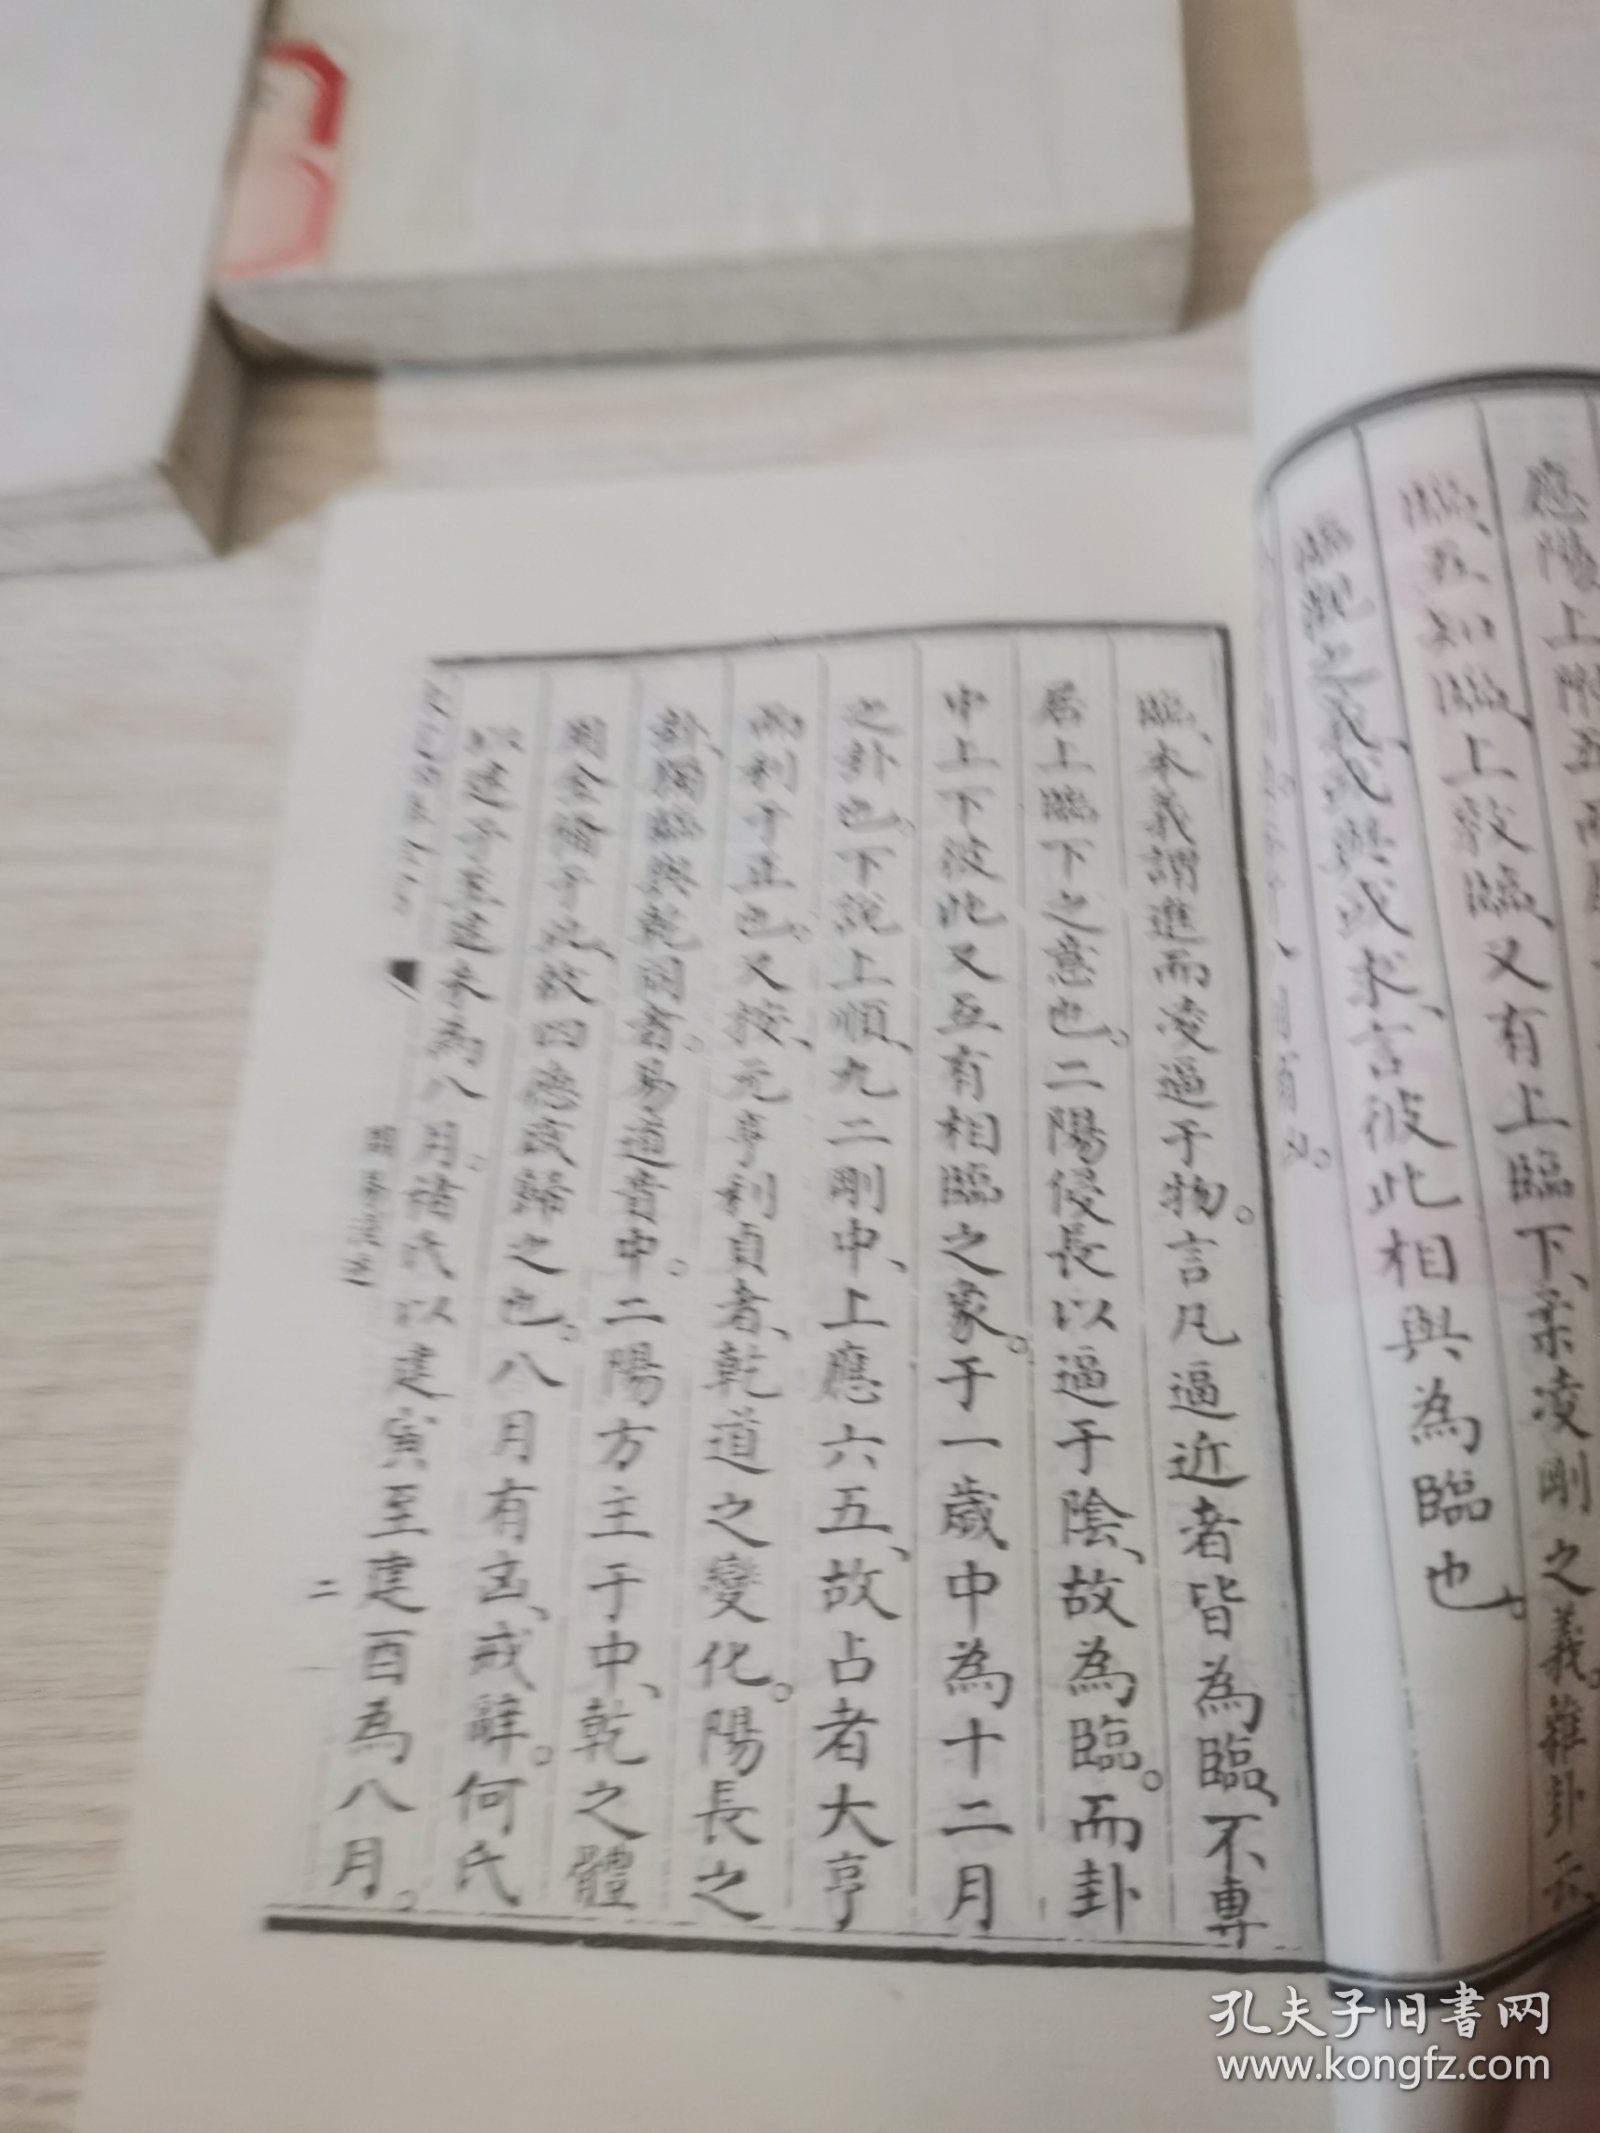 應陽上附五而
臨五知臨上敦臨又有上臨下、柔凌剛之義。雜卦云
臨觀之義、或與或求、言彼此相與為臨也。
臨、本義謂進而凌逼于物。言凡逼近者皆為臨、不專
居上臨下之意也。二陽侵長以逼于陰、故為臨。而卦
中上下彼此又互有相臨之象。于一歲中為十二月
之卦也。下說上順、九二剛中、上應六五、故占者大亨
而利于正也。又按、元亨利貞者、乾道之變化。陽長之
卦、獨臨與乾同者。易道貴中。二陽方主于中、乾之體
用全備于此、故四德咸歸之也。八月有凶、戒辭。何氏
以建子至建未為八月。褚氏以建寅至建酉為八月。
二
孔夫子旧書网
www.kongfz.com